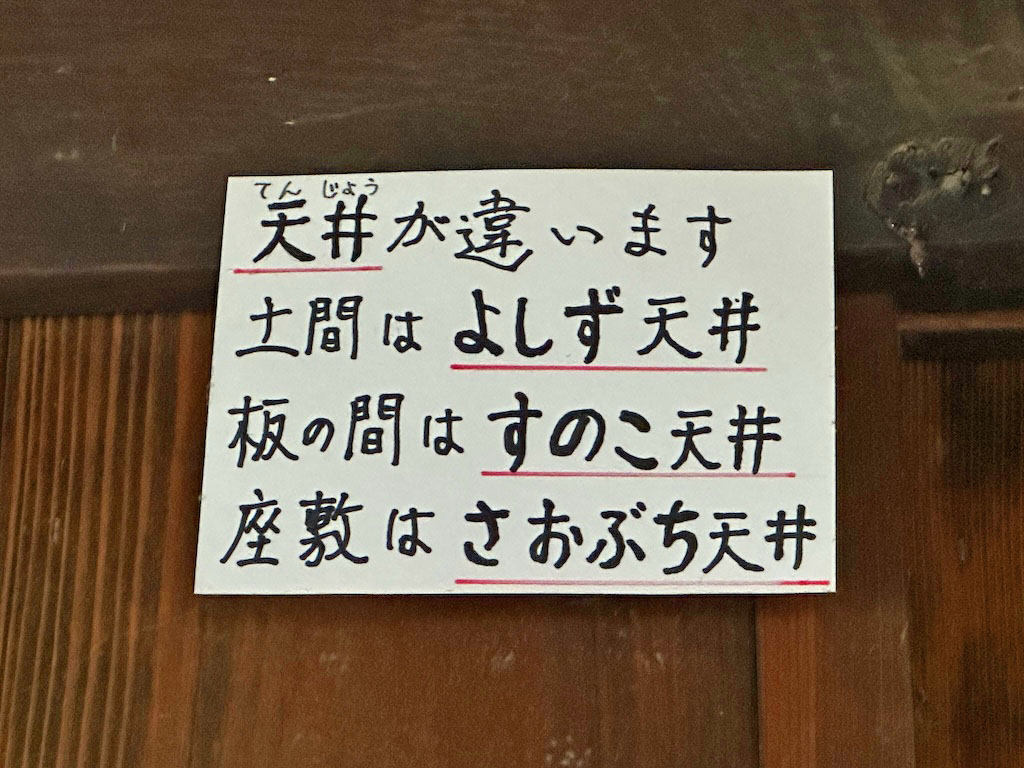 てんじょう
天井が違います
土間はよしず天井
板の間はすのこ天井
座敷はさおぶち天井